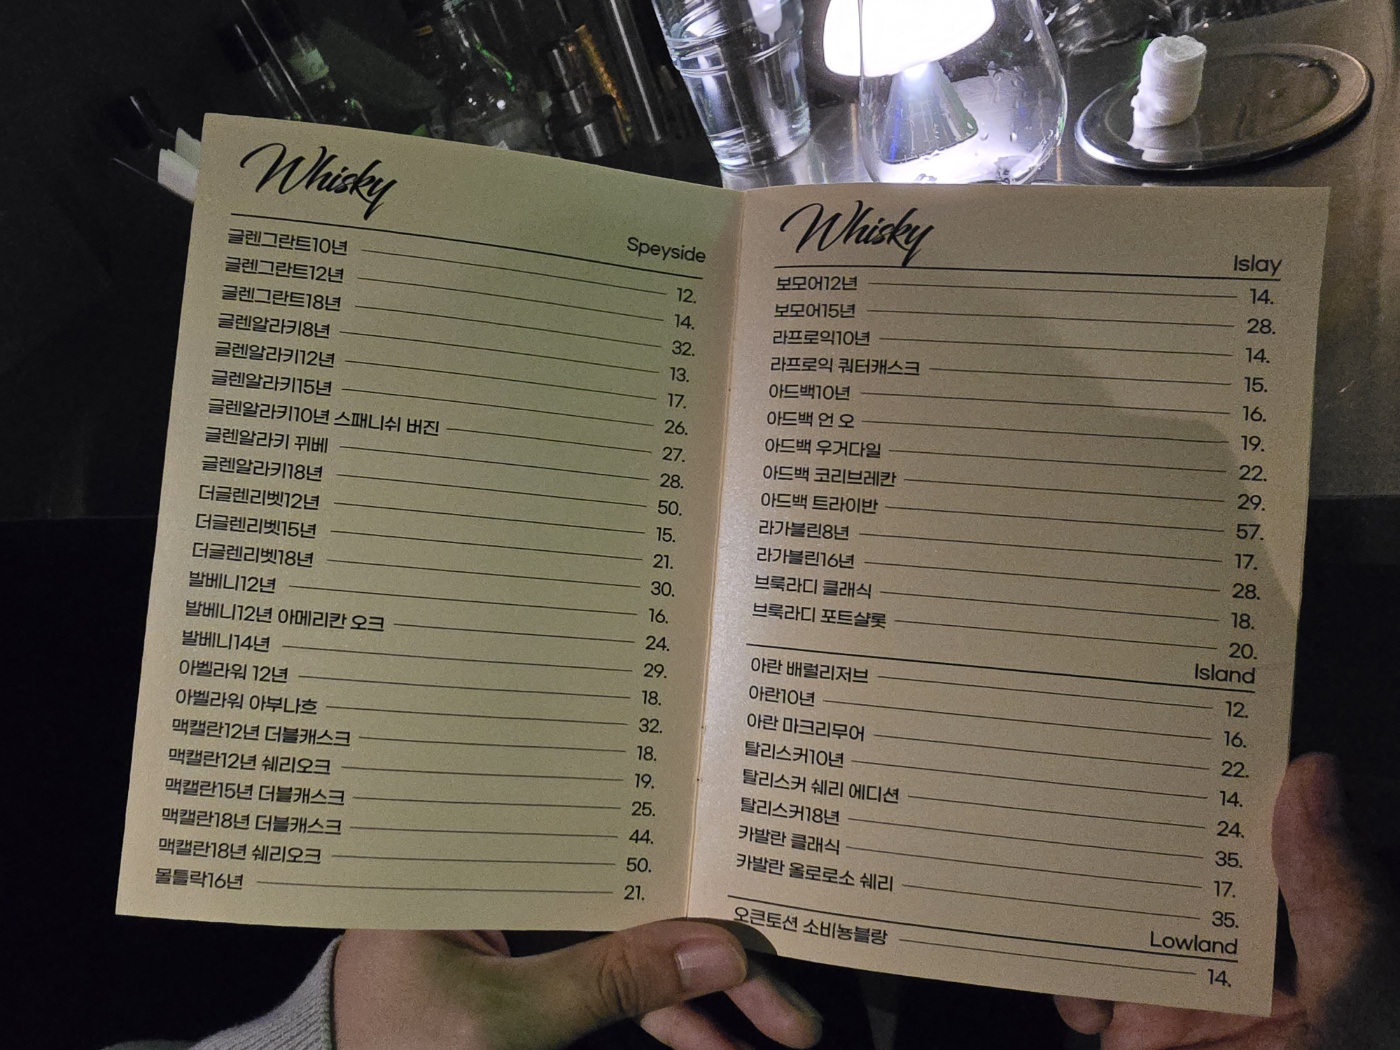 Whisky
Speyside
글렌그란트10년 12.
글렌그란트12년 14.
글렌그란트18년 32.
글렌알라키8년 13.
글렌알라키12년 17.
글렌알라키15년 26.
글렌알라키10년 스패니쉬 버진 27.
글렌알라키 뀌베 28.
글렌알라키18년 50.
더글렌리벳12년 15.
더글렌리벳15년 21.
더글렌리벳18년 30.
발베니12년 16.
발베니12년 아메리칸 오크 24.
발베니14년 29.
아벨라워 12년 18.
아벨라워 아부나흐 32.
맥캘란12년 더블캐스크 18.
맥캘란12년 쉐리오크 19.
맥캘란15년 더블캐스크 25.
맥캘란18년 더블캐스크 44.
맥캘란18년 쉐리오크 50.
몰틀락16년 21.
Whisky
Islay
보모어12년 14.
보모어15년 28.
라프로익10년 14.
라프로익 쿼터캐스크 15.
아드백10년 16.
아드백 언 오 19.
아드백 우거다일 22.
아드백 코리브레칸 29.
아드백 트라이반 57.
라가블린8년 17.
라가블린16년 28.
브룩라디 클래식 18.
브룩라디 포트샬롯 20.
Island
아란 배럴리저브 12.
아란10년 16.
아란 마크리무어 22.
탈리스커10년 14.
탈리스커 쉐리 에디션 24.
탈리스커18년 35.
카발란 클래식 17.
카발란 올로로소 쉐리 35.
Lowland
오큰토션 소비뇽블랑 14.